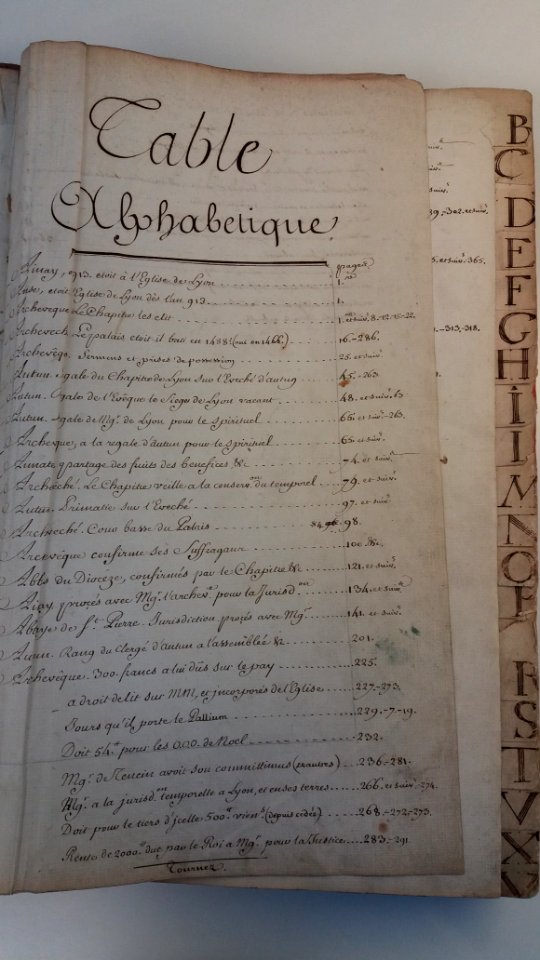 Table
Alphabetique
pages
Ainay, 913. etoit à l'Eglise de Lyon 1.
Anse, etoit Eglise de Lyon dès l'an 913. 1.
Archeveque Le Chapitre les elit 1. et suiv. 8.
Archevech. Le palais etoit il bas en 1488. (oui en 1466.) 16.-286.
Archevêq. Sermens et prises de possession 25. et suiv.
Autun. egale du Chapitre de Lyon sur l'Eveché d'autun 45.-263.
Autun. Egale de l'Eveque le Siege de Lyon vacant 48. et suiv. 63.
Autun. egale de Mgr. de Lyon pour le spirituel 65. et suiv. -263.
Archeveque, a la regale d'autun pour le spirituel 65. et suiv.
Annate, partage des fruits des benefices &c. 74. et suiv.
Archevêché. Le Chapitre veille a la conserv.on du temporel 79. et suiv.
Autun. Primatie sur l'Eveché 97. et suiv.
Archevêché. Cour basse du Palais 98.
Archevêque confirme ses Suffragans 100. &c.
Abbés du Dioceze, confirmés par le Chapitre &c 121. et suiv.
procès avec Mgr. l'archev. pour la Jurisd.on 134. et suiv.
Abaye de St. Pierre. Jurisdiction procès avec Mgr. 141. et suiv.
Autun. Rang du Clergé d'autun a l'assemblée &c 201.
Archevêque. 300. francs a lui dûs sur le pay 225.
a droit de lit sur MM. et incorporés de l'Eglise 227.-273.
Jours qu'il porte le Pallium 229.-7.-19.
Doit 54. pour les O.O.O. de Noel 232.
Mgr. de Tencin avoit son committimus (et autres) 236.-281.
Mgr. a la jurisd.on temporelle a Lyon, et en ses terres 266. et suiv. -274.
Doit pour le tiers d'jcelle 500. vien. (depuis cédée) 268.-272.-273.
Rente de 2000. due par le Roi a Mgr. pour la Justice 283.-291.
Tournez.
39.-302. et suiv.
5. et suiv. 365.
1.-313.-318.
B
C
D
E
F
G
H
I
L
M
N
O
P
R
S
T
V
X